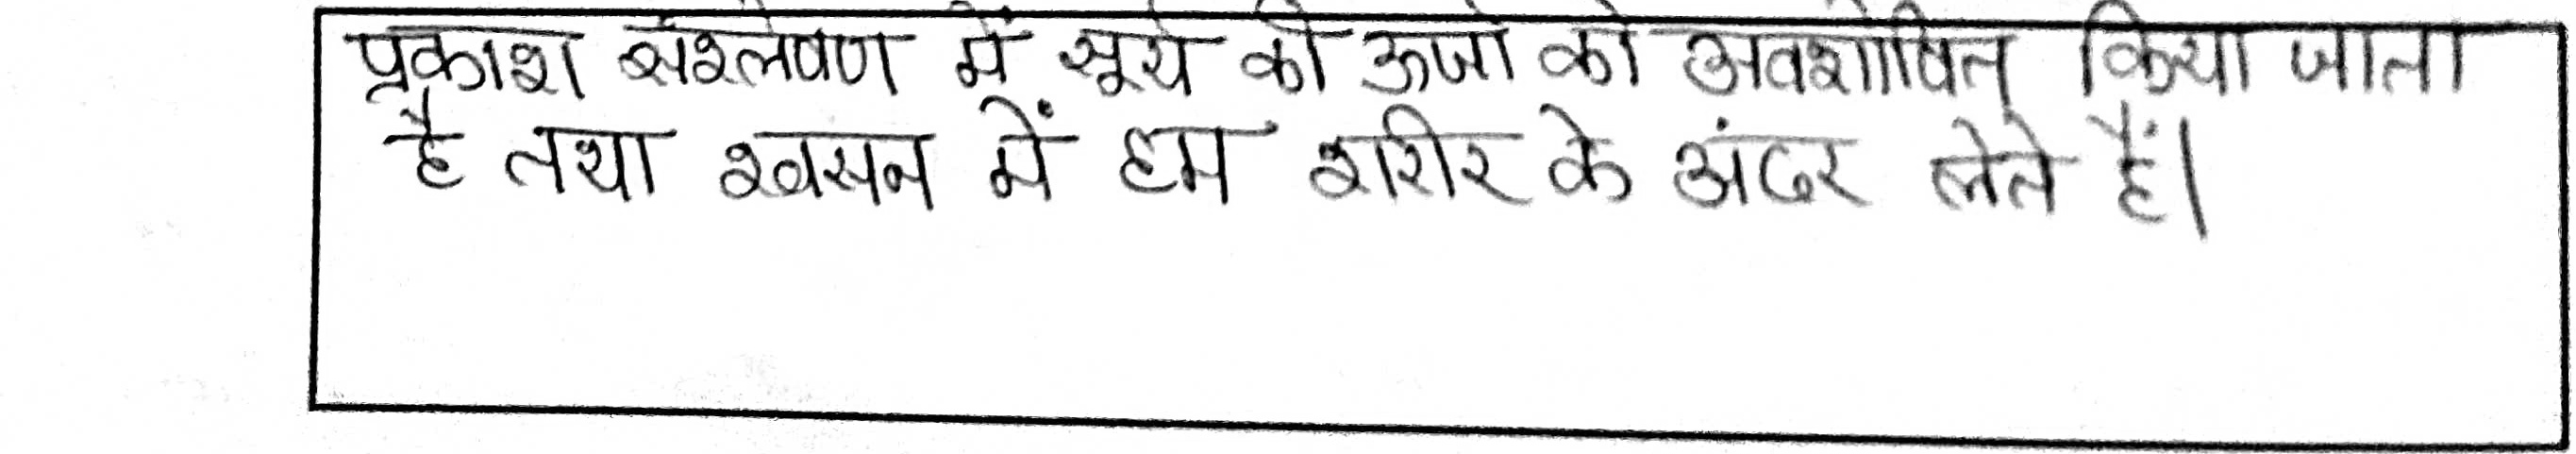 प्रकाश संश्लेषण में सूर्य की ऊर्जा को अवशोषित किया जाता
है तथा श्वसन में हम शरीर के अंदर लेते हैं।